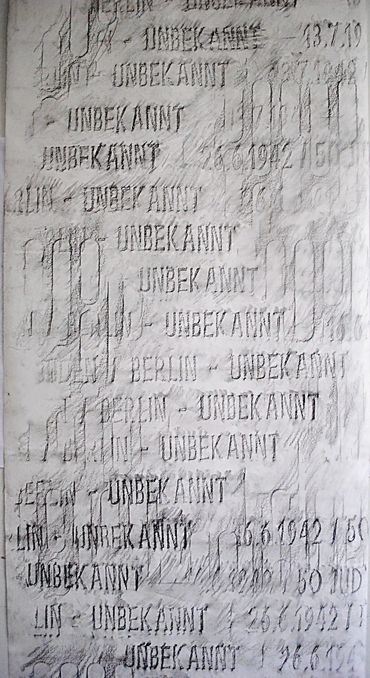 BERLIN - UNBEKANNT
- UNBEKANNT - 13.7.19
LIN - UNBEKANNT 13.7.1942
- UNBEKANNT
UNBEKANNT / 26.6.1942 / 50
RLIN - UNBEKANNT
- UNBEKANNT
UNBEKANNT
BERLIN - UNBEKANNT
JUDEN / BERLIN - UNBEKANNT
/ BERLIN - UNBEKANNT
BERLIN - UNBEKANNT
BERLIN - UNBEKANNT
LIN - UNBEKANNT 26.6.1942 / 50
UNBEKANNT 50 JUD
LIN - UNBEKANNT / 26.6.1942 /
UNBEKANNT / 26.6.194